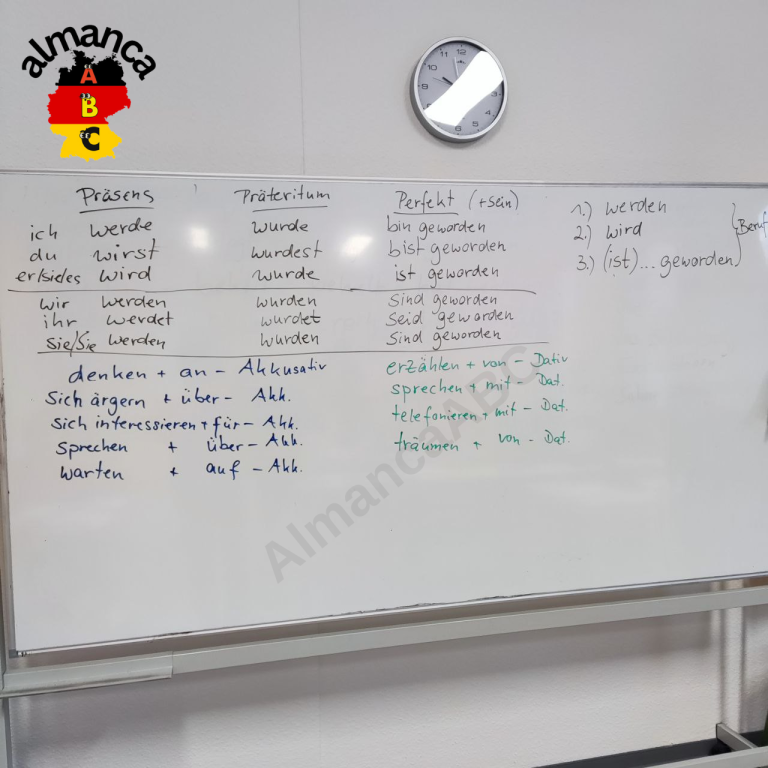 almanca
A
B
C
12
11
10
9
3
4
6
Präsens Präteritum Perfekt (+sein)
ich werde wurde bin geworden
du wirst wurdest bist geworden
er/sie/es wird wurde ist geworden
wir werden wurden sind geworden
ihr werdet wurdet seid geworden
sie/Sie werden wurden sind geworden
1.) werden
2.) wird
3.) (ist)... geworden
Beruf
denken + an - Akkusativ
sich ärgern + über - Akk.
sich interessieren + für - Akk.
sprechen + über - Akk.
warten + auf - Akk.
erzählen + von - Dativ
sprechen + mit - Dat.
telefonieren + mit - Dat.
träumen + von - Dat.
AlmancaABC